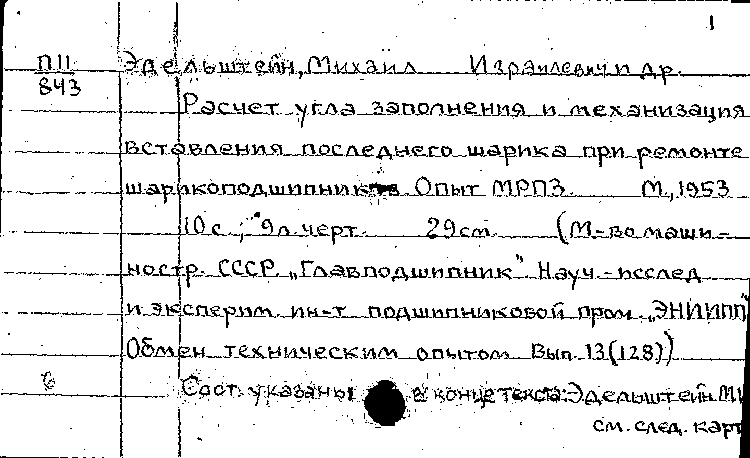 1
П11 Эдельштейн, Михаил Израилевич и др.
843
Расчет угла заполнения и механизация
вставления последнего шарика при ремонте
шарикоподшипников. Опыт МРПЗ. М., 1953
10 с.; 9 л. черт. 29 см. (М-во маши-
ностр. СССР. „Главподшипник". Науч.-исслед
и эксперим. ин-т подшипниковой пром. „ЭНИИПП"
Обмен техническим опытом. Вып. 13(128))
б Сост. указаны в конце текста: Эдельштейн М
см. след. карт